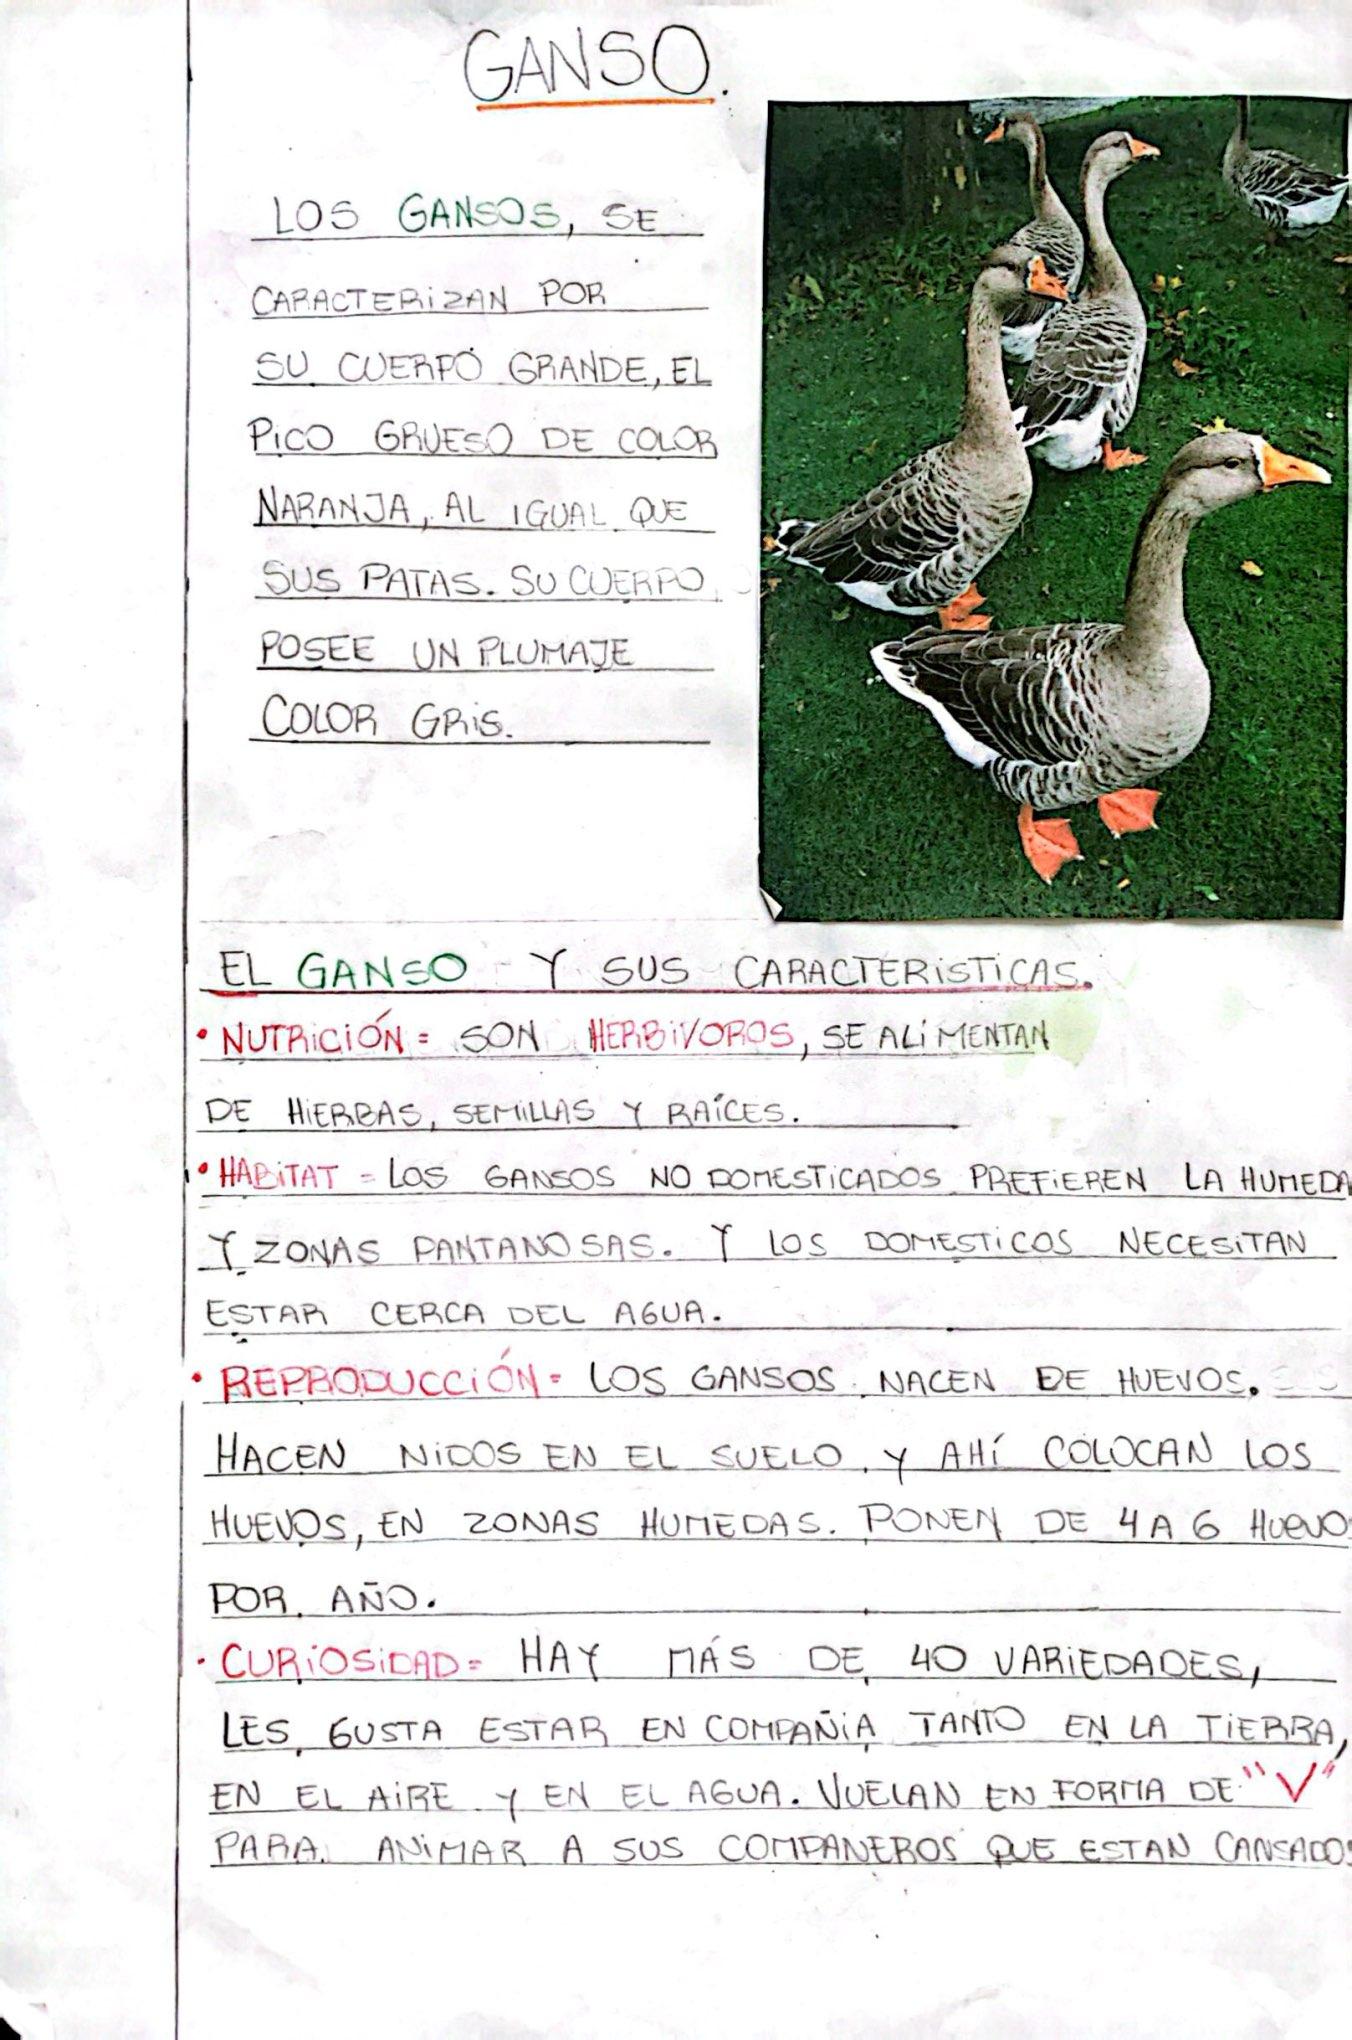 GANSO.
LOS GANSOS, SE
CARACTERIZAN POR
SU CUERPO GRANDE, EL
PICO GRUESO DE COLOR
NARANJA, AL IGUAL QUE
SUS PATAS. SU CUERPO,
POSEE UN PLUMAJE
COLOR GRIS.
EL GANSO Y SUS CARACTERISTICAS.
• NUTRICIÓN = SON HERBIVOROS, SE ALIMENTAN
DE HIERBAS, SEMILLAS Y RAÍCES.
• HABITAT = LOS GANSOS NO DOMESTICADOS PREFIEREN LA HUMEDA
Y ZONAS PANTANOSAS. Y LOS DOMESTICOS NECESITAN
ESTAR CERCA DEL AGUA.
• REPRODUCCIÓN = LOS GANSOS NACEN DE HUEVOS.
HACEN NIDOS EN EL SUELO, Y AHÍ COLOCAN LOS
HUEVOS, EN ZONAS HUMEDAS. PONEN DE 4 A 6 HUEVOS
POR AÑO.
• CURIOSIDAD = HAY MÁS DE 40 VARIEDADES,
LES GUSTA ESTAR EN COMPAÑIA TANTO EN LA TIERRA,
EN EL AIRE Y EN EL AGUA. VUELAN EN FORMA DE "V"
PARA ANIMAR A SUS COMPANEROS QUE ESTAN CANSADOS